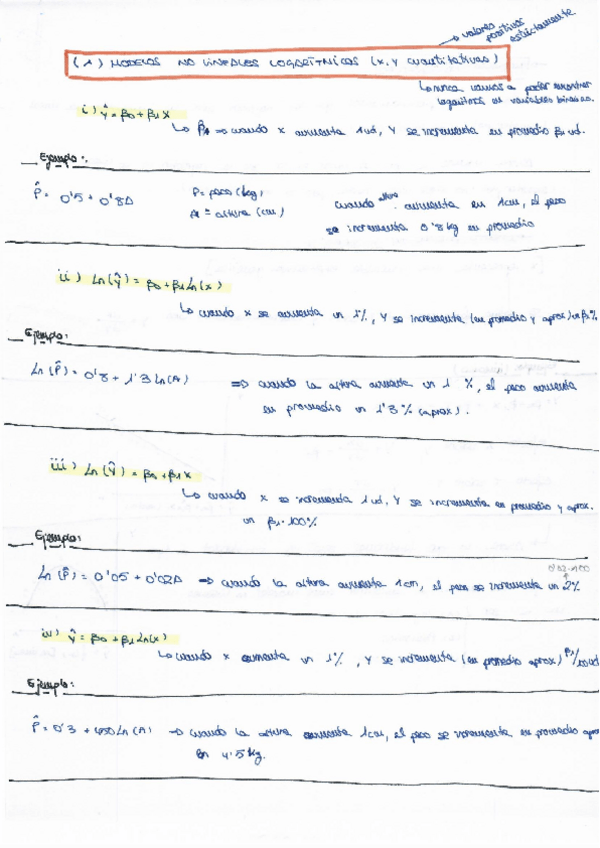 → valores positivos estrictamente
(1) MODELOS NO LINEALES LOGARÍTMICOS (X, Y cuantitativas)
↳ nunca vamos a poder encontrar
logaritmos en variables binarias.
i) Ŷ = β0 + β1X
↳ β̂1 → cuando x aumenta 1ud, Y se incrementa en promedio β1 ud.
Ejemplo:
P̂ = 0'5 + 0'8A
P = peso (kg)
A = altura (cm)
cuando altura aumenta en 1cm, el peso
se incrementa 0'8 kg en promedio
ii) Ln(Ŷ) = β0 + β1 Ln(x)
↳ cuando x se aumenta un 1%, Y se incrementa (en promedio y aprox) un β1%
Ejemplo:
Ln(P̂) = 0'8 + 1'3 Ln(A) ⇒ cuando la altura aumente un 1 %, el peso aumenta
en promedio un 1'3% (aprox).
iii) Ln(Ŷ) = β0 + β1X
↳ cuando x se incrementa 1ud, Y se incrementa en promedio y aprox.
un β1·100%
Ejemplo:
0'02·100
Ln(P̂) = 0'05 + 0'02A → cuando la altura aumenta 1cm, el peso se incrementa un 2%
iv) Ŷ = β0 + β1 Ln(x)
↳ cuando x aumenta un 1%, Y se incrementa (en promedio aprox) β1/100 ud
Ejemplo:
P̂ = 0'3 + 450 Ln(A) → cuando la altura aumenta 1cm, el peso se incrementa en promedio apro
en 4.5 kg.